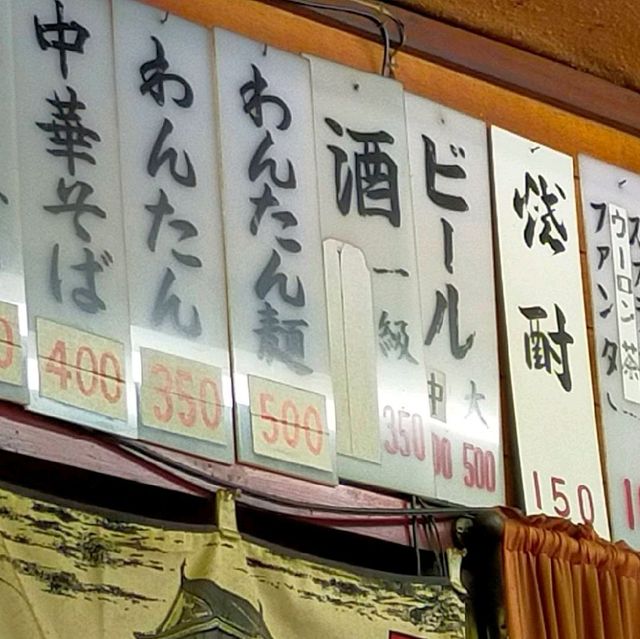 中華そば
400
わんたん
350
わんたん麺
500
酒
一級
350
ビール
大
中
500
焼酎
150
ウーロン茶
ファンタ